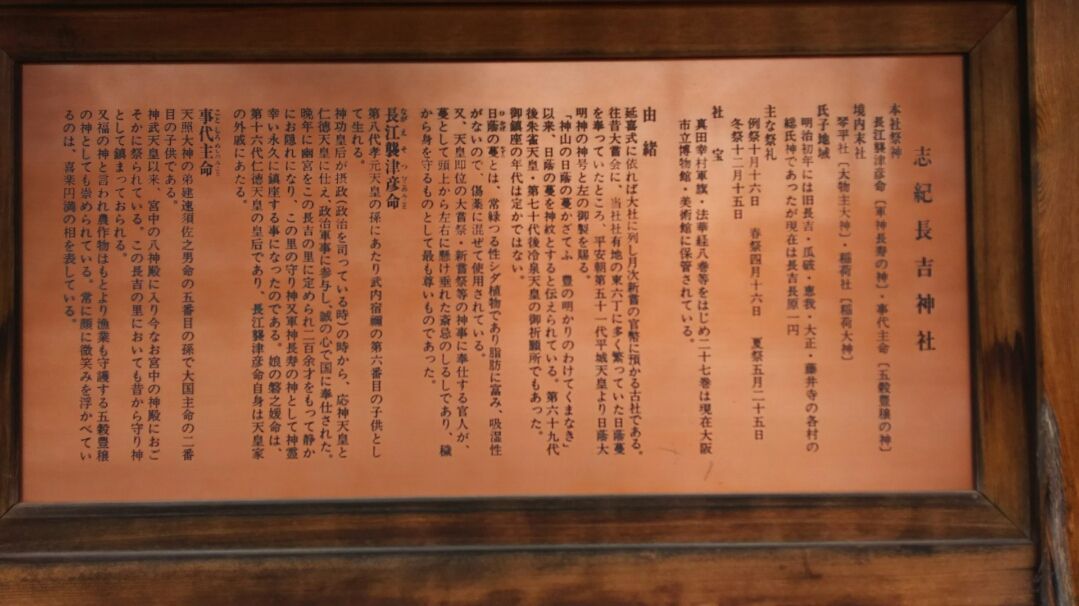 志紀長吉神社
本社祭神
長江襲津彦命〔軍神長寿の神〕・事代主命〔五穀豊穣の神〕
境内末社
琴平社〔大物主大神〕・稲荷社〔稲荷大神〕
氏子地域
明治初年には旧長吉・瓜破・恵我・大正・藤井寺の各村の
総氏神であったが現在は長吉長原一円
主な祭礼
例祭十月十六日　春祭四月十六日　夏祭五月二十五日
冬祭十二月十五日
社宝
真田幸村軍旗・法華経八巻等をはじめ二十七巻は現在大阪
市立博物館・美術館に保管されている。
由緒
延喜式に依れば大社に列し月次新嘗の官幣に預かる古社である。
往昔大嘗会に、当社社有地の東六丁に多く繁っていた日蔭蔓
を奉っていたところ、平安朝第五十一代平城天皇より日蔭大
明神の神号と左の御製を賜る。
「神山の日蔭の蔓かざてふ　豊の明かりのわけてくまなき」
以来、日蔭の蔓を神紋とすると伝えられている。第六十九代
後朱雀天皇・第七十代後冷泉天皇の御祈願所でもあった。
御鎮座の年代は定かではない。
日蔭の蔓とは、常緑つる性シダ植物であり脂肪に富み、吸湿性
がないので、傷薬に混ぜて使用されている。
又、天皇即位の大嘗祭・新嘗祭等の神事に奉仕する官人が、
蔓として頭上から左右に懸け垂れた斎忌のしるしであり、穢
から身を守るものとして最も尊いものであった。
長江襲津彦命
第八代孝元天皇の孫にあたり武内宿禰の第六番目の子供とし
て生れる。
神功皇后が摂政（政治を司っている時）の時から、応神天皇と
仁徳天皇に仕え、政治軍事に参与し、誠の心で国に奉仕された。
晩年に幽宮をこの長吉の里に定められ二百余才をもって静か
にお隠れになり、この里の守り神又軍神長寿の神として神霊
幸い永久に鎮座する事になったのである。娘の磐之媛命は、
第十六代仁徳天皇の皇后であり、長江襲津彦命自身は天皇家
の外戚にあたる。
事代主命
天照大神の弟建速須佐之男命の五番目の孫で大国主命の二番
目の子供である。
神武天皇以来、宮中の八神殿に入り今なお宮中の神殿におご
そかに祭られている。この長吉の里においても昔から守り神
として鎮まっておられる。
又福の神と言われ農作物はもとより漁業も守護する五穀豊穣
の神としても崇められている。常に顔に微笑みを浮かべてい
るのは、喜楽円満の相を表している。